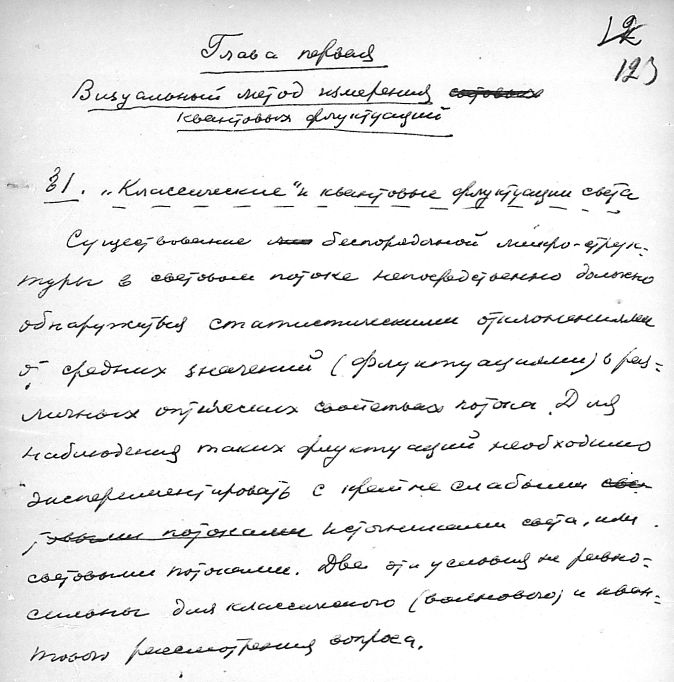 12
123
Глава первая
Визуальный метод измерения световых
квантовых флуктуаций
§1. „Классические“ и квантовые флуктуации света
Существование беспорядочной микро-струк-
туры в световом потоке непосредственно должно
обнаружиться статистическими отклонениями
от средних значений (флуктуациями) в раз-
личных оптических свойствах потока. Для
наблюдения таких флуктуаций необходимо
экспериментировать с крайне слабыми све-
товыми потоками источниками света, или
световыми потоками. Две эти условия не равно-
сильны для классического (волнового) и кван-
тового рассмотрения вопроса.